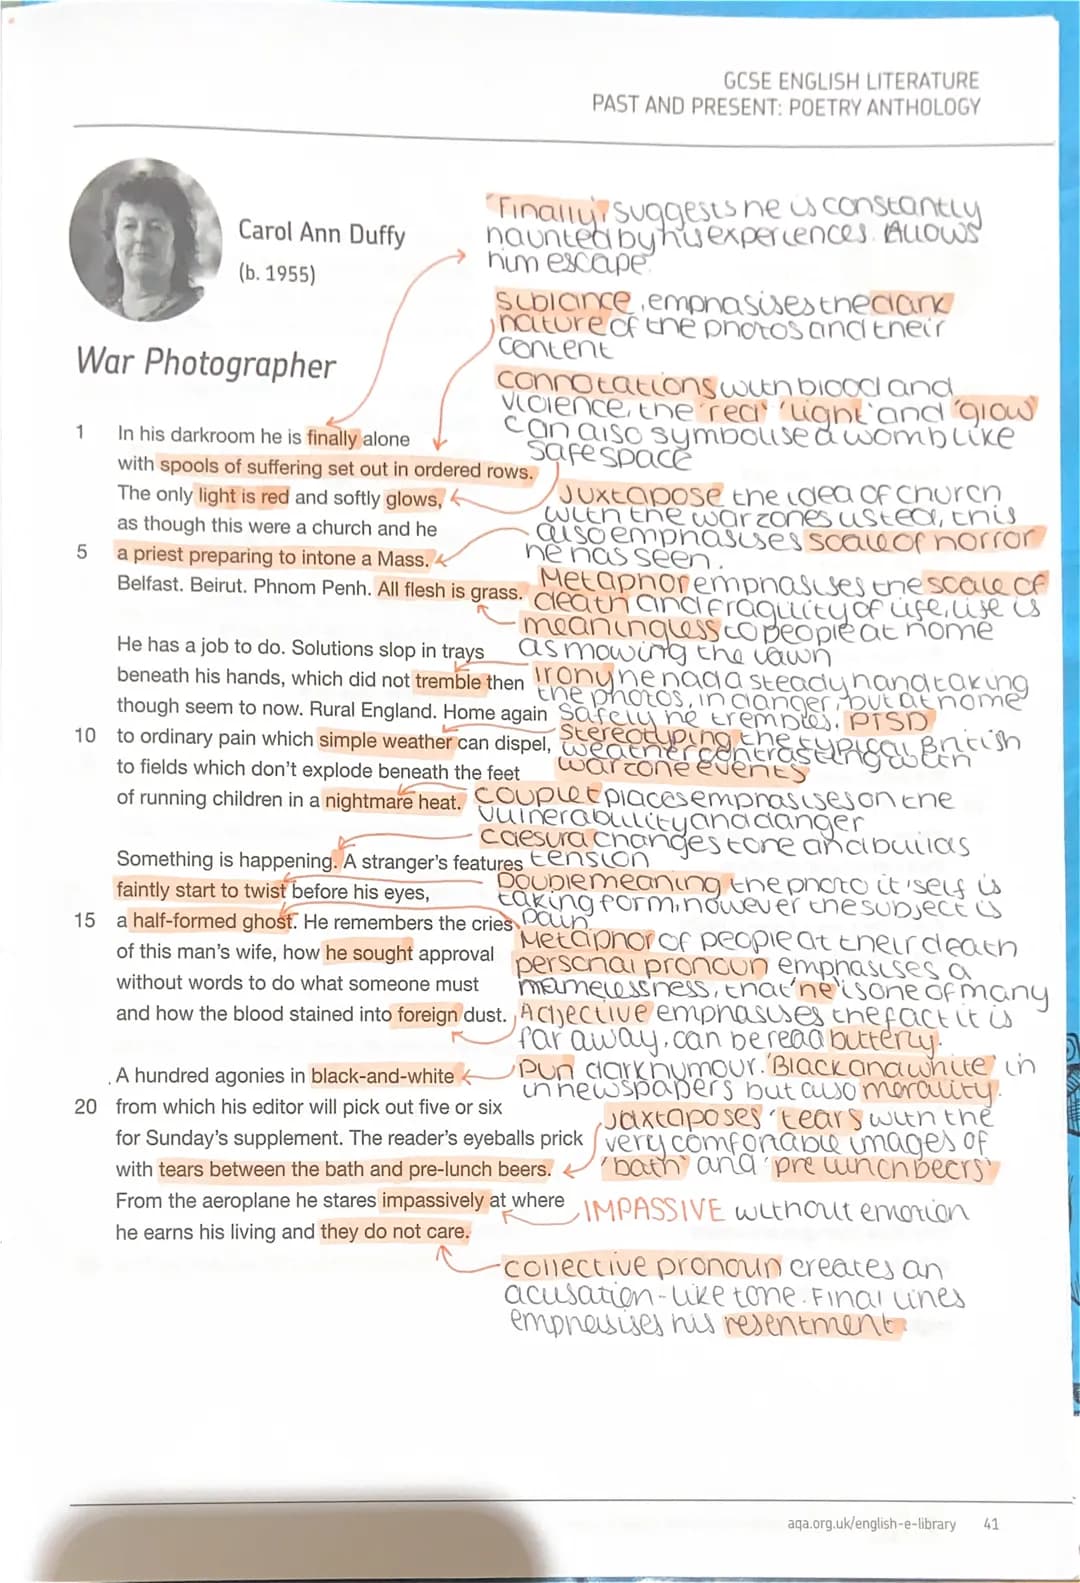 GCSE ENGLISH LITERATURE
PAST AND PRESENT: POETRY ANTHOLOGY
Carol Ann Duffy
(b. 1955)
War Photographer
'Finally', suggests he is constantly
haunted by his experiences. Allows
him escape.
Sibiance, emphasises the dark
nature of the photos and their
content
connotations with blood and
violence, the 'red' 'light' and 'glow'
can also symbolise a womb like
safe space
Juxtapose the idea of church
with the warzones usted, this
also emphasises scale of horror
he has seen.
Metaphor emphasises the scale of
death and fraguity of life, life is
meaningless to people at home
as mowing the lawn
irony he had a steady hand taking
the photos, in danger, but at home
safely he trembles. PTSD
Stereotyping the typical British
weather contrasting with
warzone events
couplet places emphasises on the
vulnerability and danger
caesura changes tone and builds
tension
Double meaning, the photo it 'self is
taking form, however the subject is
pain
Metaphor of people at their death
personal pronoun emphasises a
namelessness, that 'he' is one of many
Adjective emphasises the fact it is
far away, can be read butterly.
Pun dark humour. 'Black and white' in
in newspapers but also morality.
Juxtaposes 'tears with the
very comfortable images of
'bath' and 'pre lunch beers'
IMPASSIVE without emotion
collective pronoun creates an
acusation-like tone. Final lines
emphasises his resentment.
1 In his darkroom he is finally alone
with spools of suffering set out in ordered rows.
The only light is red and softly glows,
as though this were a church and he
5 a priest preparing to intone a Mass.
Belfast. Beirut. Phnom Penh. All flesh is grass.
He has a job to do. Solutions slop in trays
beneath his hands, which did not tremble then
though seem to now. Rural England. Home again
10 to ordinary pain which simple weather can dispel,
to fields which don't explode beneath the feet
of running children in a nightmare heat.
Something is happening. A stranger's features
faintly start to twist before his eyes,
15 a half-formed ghost. He remembers the cries
of this man's wife, how he sought approval
without words to do what someone must
and how the blood stained into foreign dust.
A hundred agonies in black-and-white
20 from which his editor will pick out five or six
for Sunday's supplement. The reader's eyeballs prick
with tears between the bath and pre-lunch beers.
From the aeroplane he stares impassively at where
he earns his living and they do not care.
aqa.org.uk/english-e-library 41